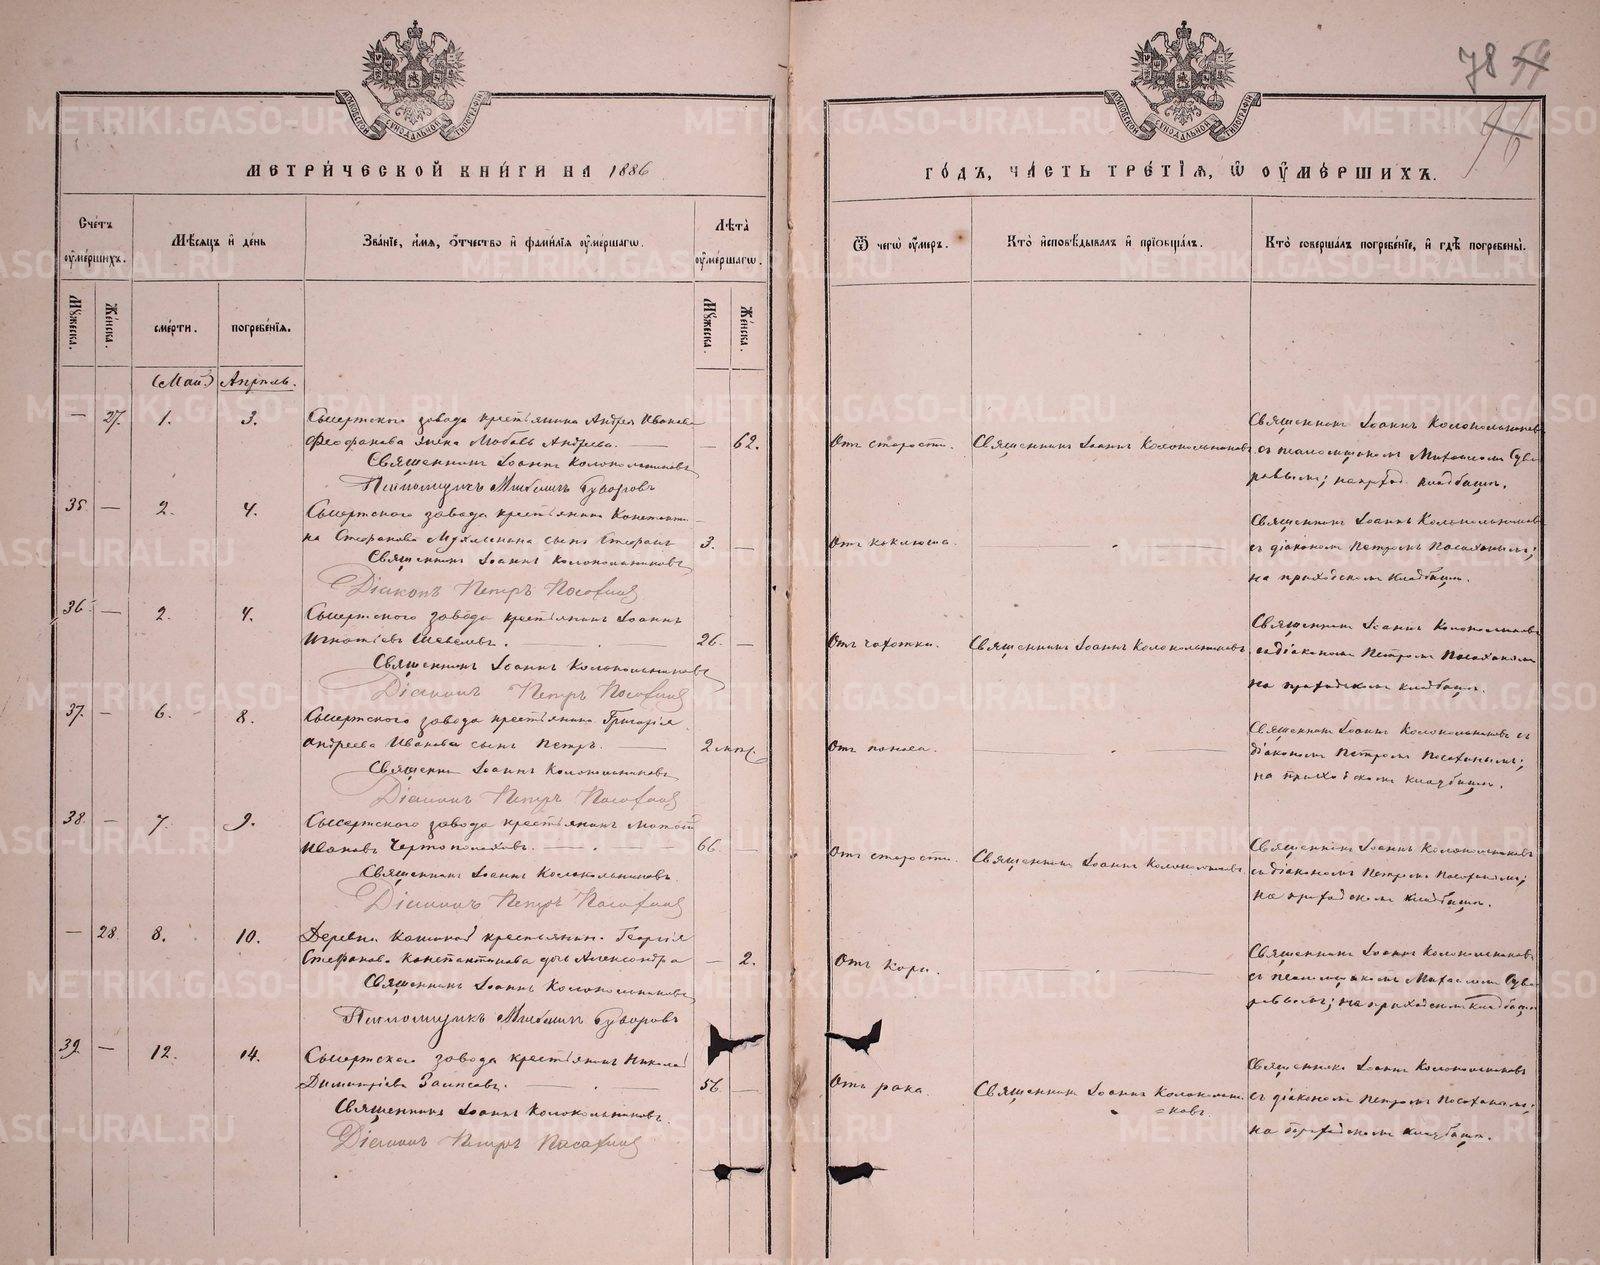 78
МЕТРИЧЕСКОЙ КНИГИ НА 1886
ГОДЪ, ЧАСТЬ ТРЕТІЯ, Ѿ ОУМЕРШИХЪ.
Счетъ оумершихъ.
Мѣсяцъ и день
Званіе, имя, отчество и фамилія оумершагѡ.
Лѣта оумершагѡ.
Ѿ чегѡ оумеръ.
Кто исповѣдывалъ и пріобщалъ.
Кто совершалъ погребеніе, и гдѣ погребены.
Мужеска.
Женска.
смерти.
погребенія.
Мужеска.
Женска.
(Май) Апрѣль.
— 27. 1. 3. Сысертскаго завода крестьянина Андрея Иванова
Феофанова жена Любовь Андреева. — — 62.
Отъ старости. Священникъ Іоаннъ Колокольниковъ
Священникъ Іоаннъ Колокольниковъ
съ псаломщикомъ Михаиломъ Суво
ровымъ; на приход. кладбищѣ.
Священникъ Іоаннъ Колокольниковъ
Псаломщикъ Михаилъ Суворовъ
35. — 2. 4. Сысертскаго завода крестьянина Константи
на Стефанова сынъ Стефанъ 3. —
Отъ коклюша. —
Священникъ Іоаннъ Колокольниковъ
съ діакономъ Петромъ
на приходскомъ кладбищѣ.
Священникъ Іоаннъ Колокольниковъ
Діаконъ Петръ
36. — 2. 4. Сысертскаго завода крестьянинъ Іоаннъ
Игнатіевъ 26. —
Отъ чахотки. Священникъ Іоаннъ Колокольниковъ
Священникъ Іоаннъ Колокольниковъ
съ діакономъ Петромъ
на приходскомъ кладбищѣ.
Священникъ Іоаннъ Колокольниковъ
Діаконъ Петръ
37. — 6. 8. Сысертскаго завода крестьянина Григорія
Андреева Иванова сынъ Петръ. — 2
Отъ поноса. —
Священникъ Іоаннъ Колокольниковъ съ
діакономъ Петромъ
на приходскомъ кладбищѣ.
Священникъ Іоаннъ Колокольниковъ
Діаконъ Петръ
38. — 7. 9. Сысертскаго завода крестьянинъ
Ивановъ Чертополоховъ. — 66. —
Отъ старости. Священникъ Іоаннъ Колокольниковъ
Священникъ Іоаннъ Колокольниковъ
съ діакономъ Петромъ
на приходскомъ кладбищѣ.
Священникъ Іоаннъ Колокольниковъ.
Діаконъ Петръ
— 28. 8. 10. Деревни Кашиной крестьянина Георгія
Стефанова Константинова дочь Александра — 2.
Отъ кори. —
Священникъ Іоаннъ Колокольниковъ
съ псаломщикомъ Михаиломъ Суво
ровымъ; на приходскомъ кладбищѣ
Священникъ Іоаннъ Колокольниковъ
Псаломщикъ Михаилъ Суворовъ
39. — 12. 14. Сысертскаго завода крестьянинъ Николай
Димитріевъ 56. —
Отъ рака. Священникъ Іоаннъ Колокольни
ковъ.
Священникъ Іоаннъ Колокольниковъ
съ діакономъ Петромъ
на приходскомъ кладбищѣ.
Священникъ Іоаннъ Колокольниковъ.
Діаконъ Петръ
METRIKI.GASO-URAL.RU